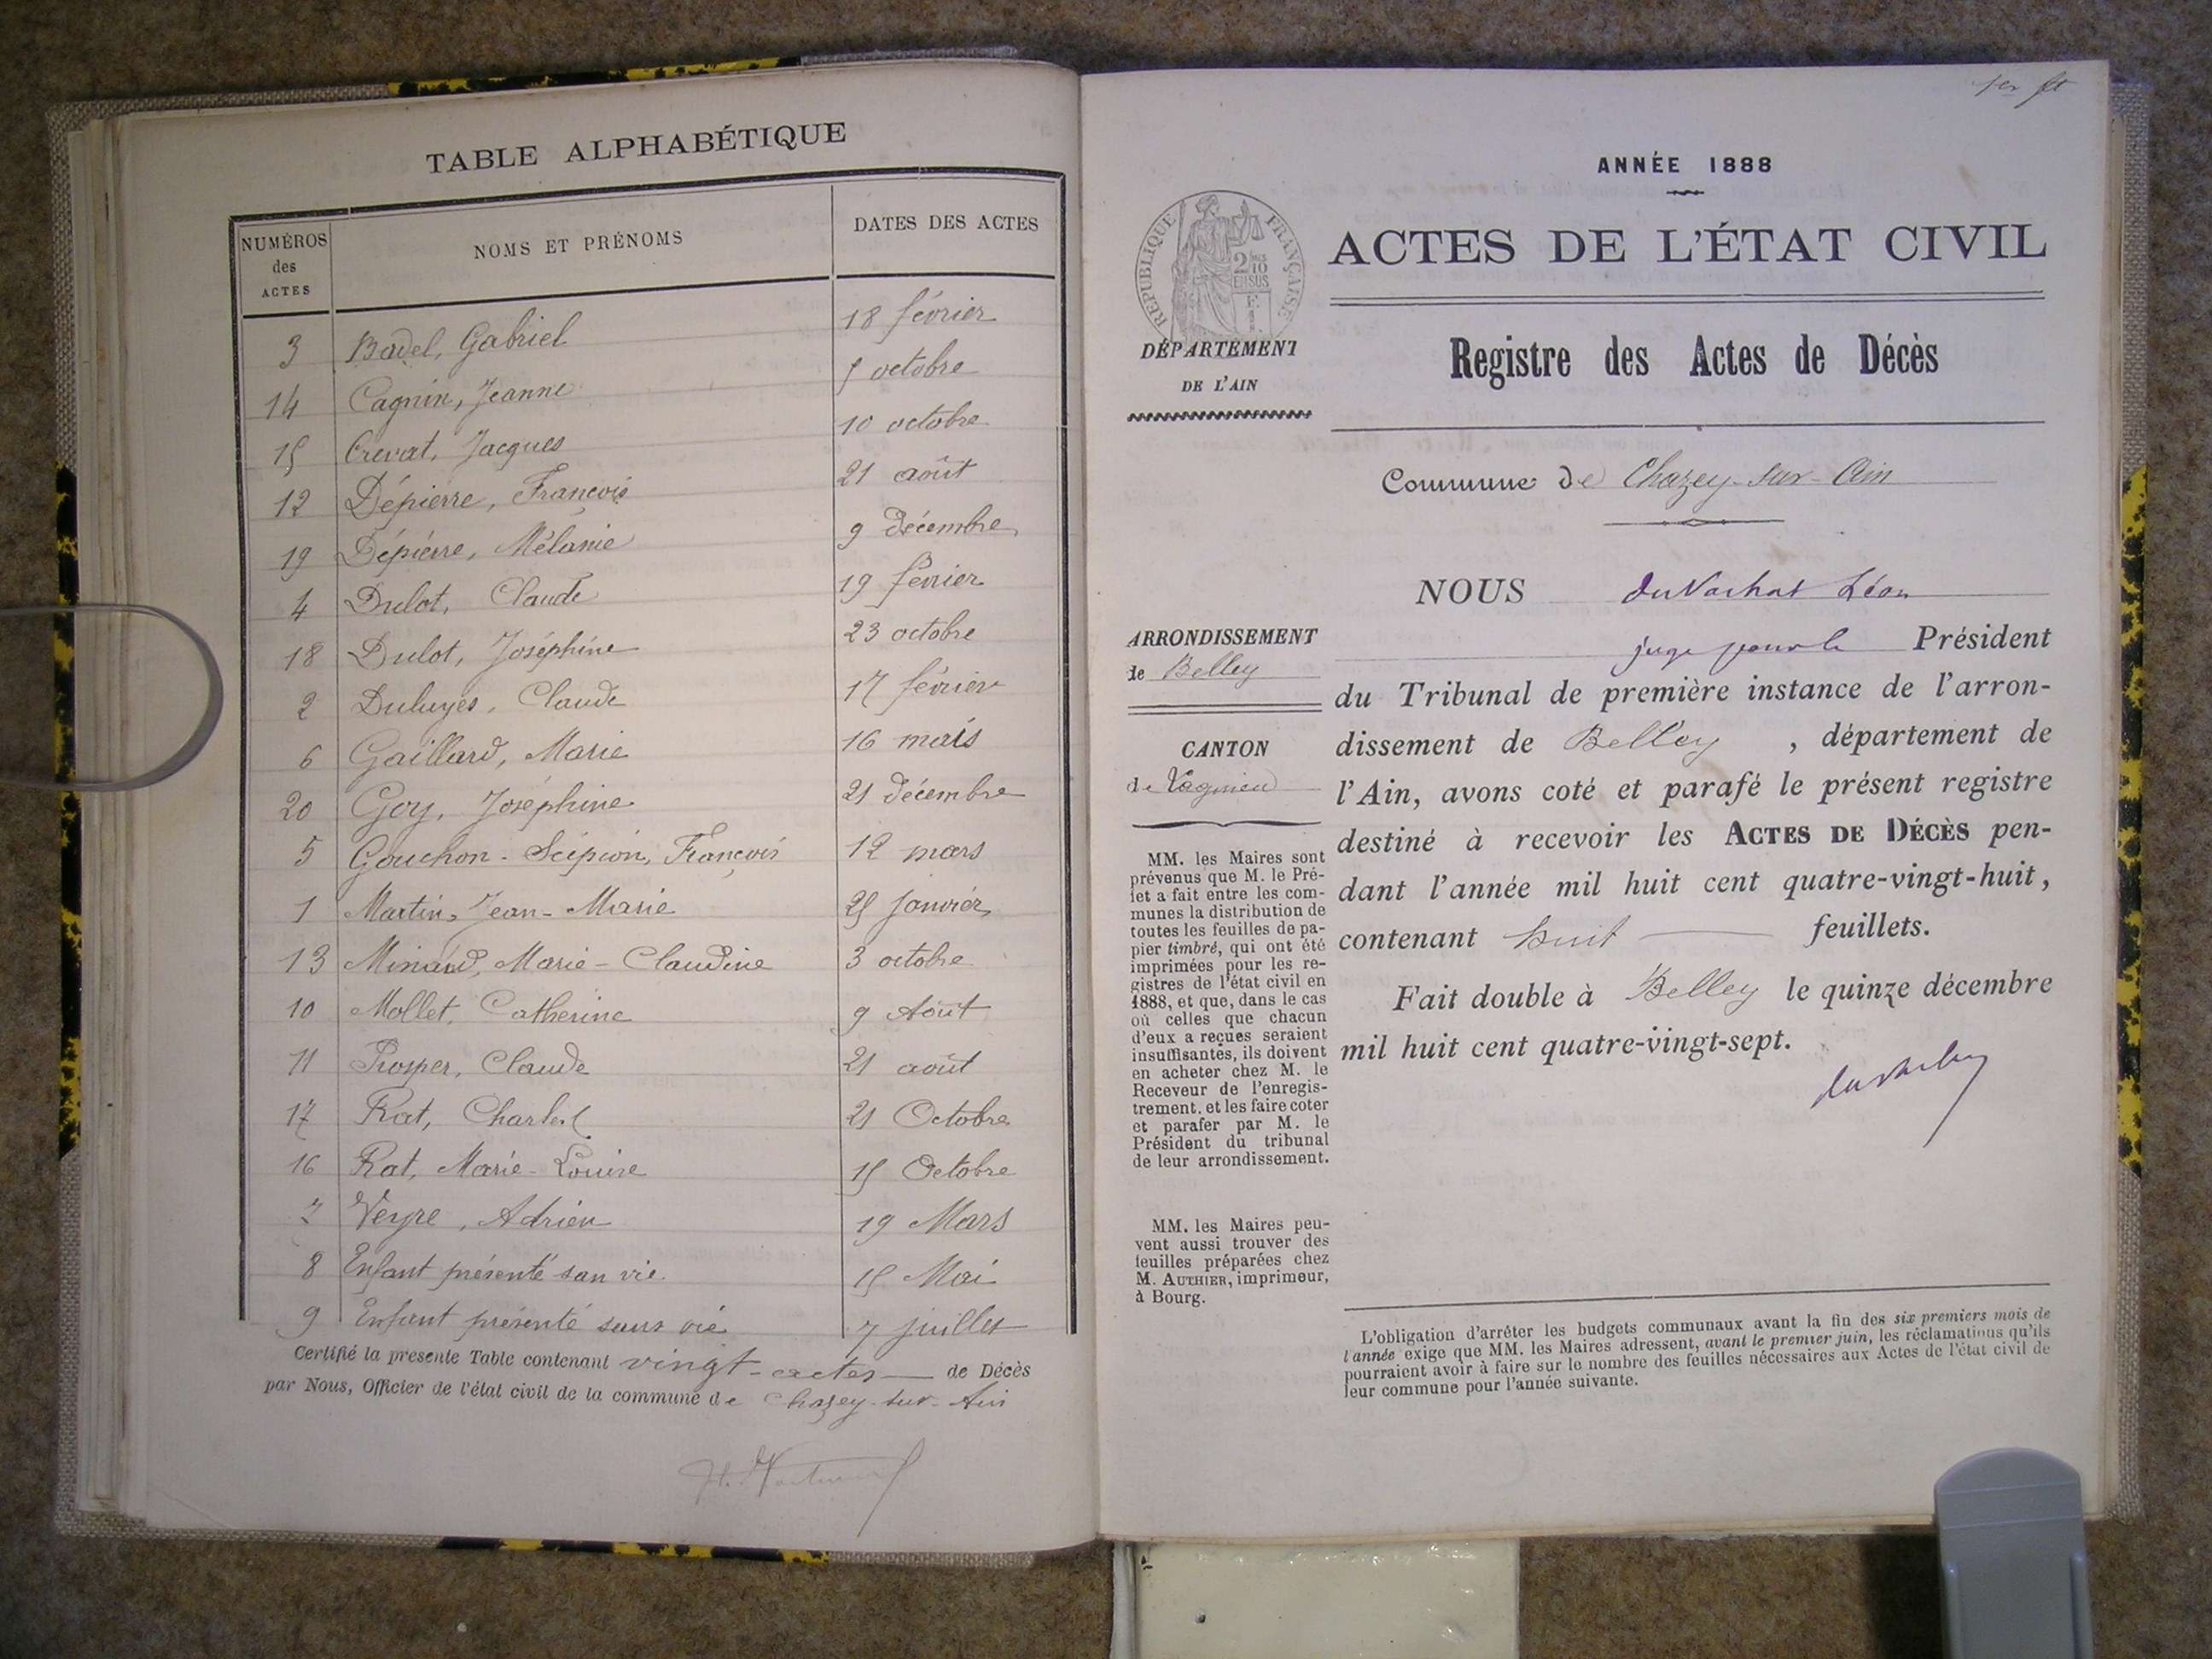 TABLE ALPHABÉTIQUE
NUMÉROS des ACTES
NOMS ET PRÉNOMS
DATES DES ACTES
3 Badel, Gabriel 18 février
14 Cagnin, Jeanne 5 octobre
15 Crevat, Jacques 10 octobre
12 Dépierre, François 21 août
19 Dépierre, Mélanie 9 décembre
4 Dulot, Claude 19 février
18 Dulot, Joséphine 23 octobre
2 Duluyes, Claude 17 février
6 Gaillard, Marie 16 mars
20 Goy, Joséphine 21 décembre
5 Gouchon-Scipion, François 12 mars
1 Martin, Jean-Marie 25 janvier
13 Minaud, Marie-Claudine 3 octobre
10 Mollet, Catherine 9 Août
11 Prosper, Claude 21 août
17 Rat, Charles 21 Octobre
16 Rat, Marie-Louise 15 Octobre
7 Veyre, Adrien 19 Mars
8 Enfant présenté san vie 15 Mai
9 Enfant présenté sans vie 7 juillet
Certifié la presente Table contenant vingt-actes de Décès
par Nous, Officier de l'état civil de la commune de Chazey-sur-Ain
1er ft
ANNÉE 1888
RÉPUBLIQUE FRANÇAISE
2/10
EN SUS
ACTES DE L'ÉTAT CIVIL
Registre des Actes de Décès
DÉPARTEMENT
DE L'AIN
Commune de Chazey-sur-Ain
NOUS du Vachat Léon
juge pour le Président
du Tribunal de première instance de l'arron-
dissement de Belley, département de
l'Ain, avons coté et parafé le présent registre
destiné à recevoir les ACTES DE DÉCÈS pen-
dant l'année mil huit cent quatre-vingt-huit,
contenant huit feuillets.
Fait double à Belley le quinze décembre
mil huit cent quatre-vingt-sept.
ARRONDISSEMENT
de Belley
CANTON
de Lagnieu
MM. les Maires sont
prévenus que M. le Pré-
fet a fait entre les com-
munes la distribution de
toutes les feuilles de pa-
pier timbré, qui ont été
imprimées pour les re-
gistres de l'état civil en
1888, et que, dans le cas
où celles que chacun
d'eux a reçues seraient
insuffisantes, ils doivent
en acheter chez M. le
Receveur de l'enregis-
trement, et les faire coter
et parafer par M. le
Président du tribunal
de leur arrondissement.
MM. les Maires peu-
vent aussi trouver des
feuilles préparées chez
M. AUTHIER, imprimeur,
à Bourg.
L'obligation d'arrêter les budgets communaux avant la fin des six premiers mois de
l'année exige que MM. les Maires adressent, avant le premier juin, les réclamations qu'ils
pourraient avoir à faire sur le nombre des feuilles nécessaires aux Actes de l'état civil de
leur commune pour l'année suivante.